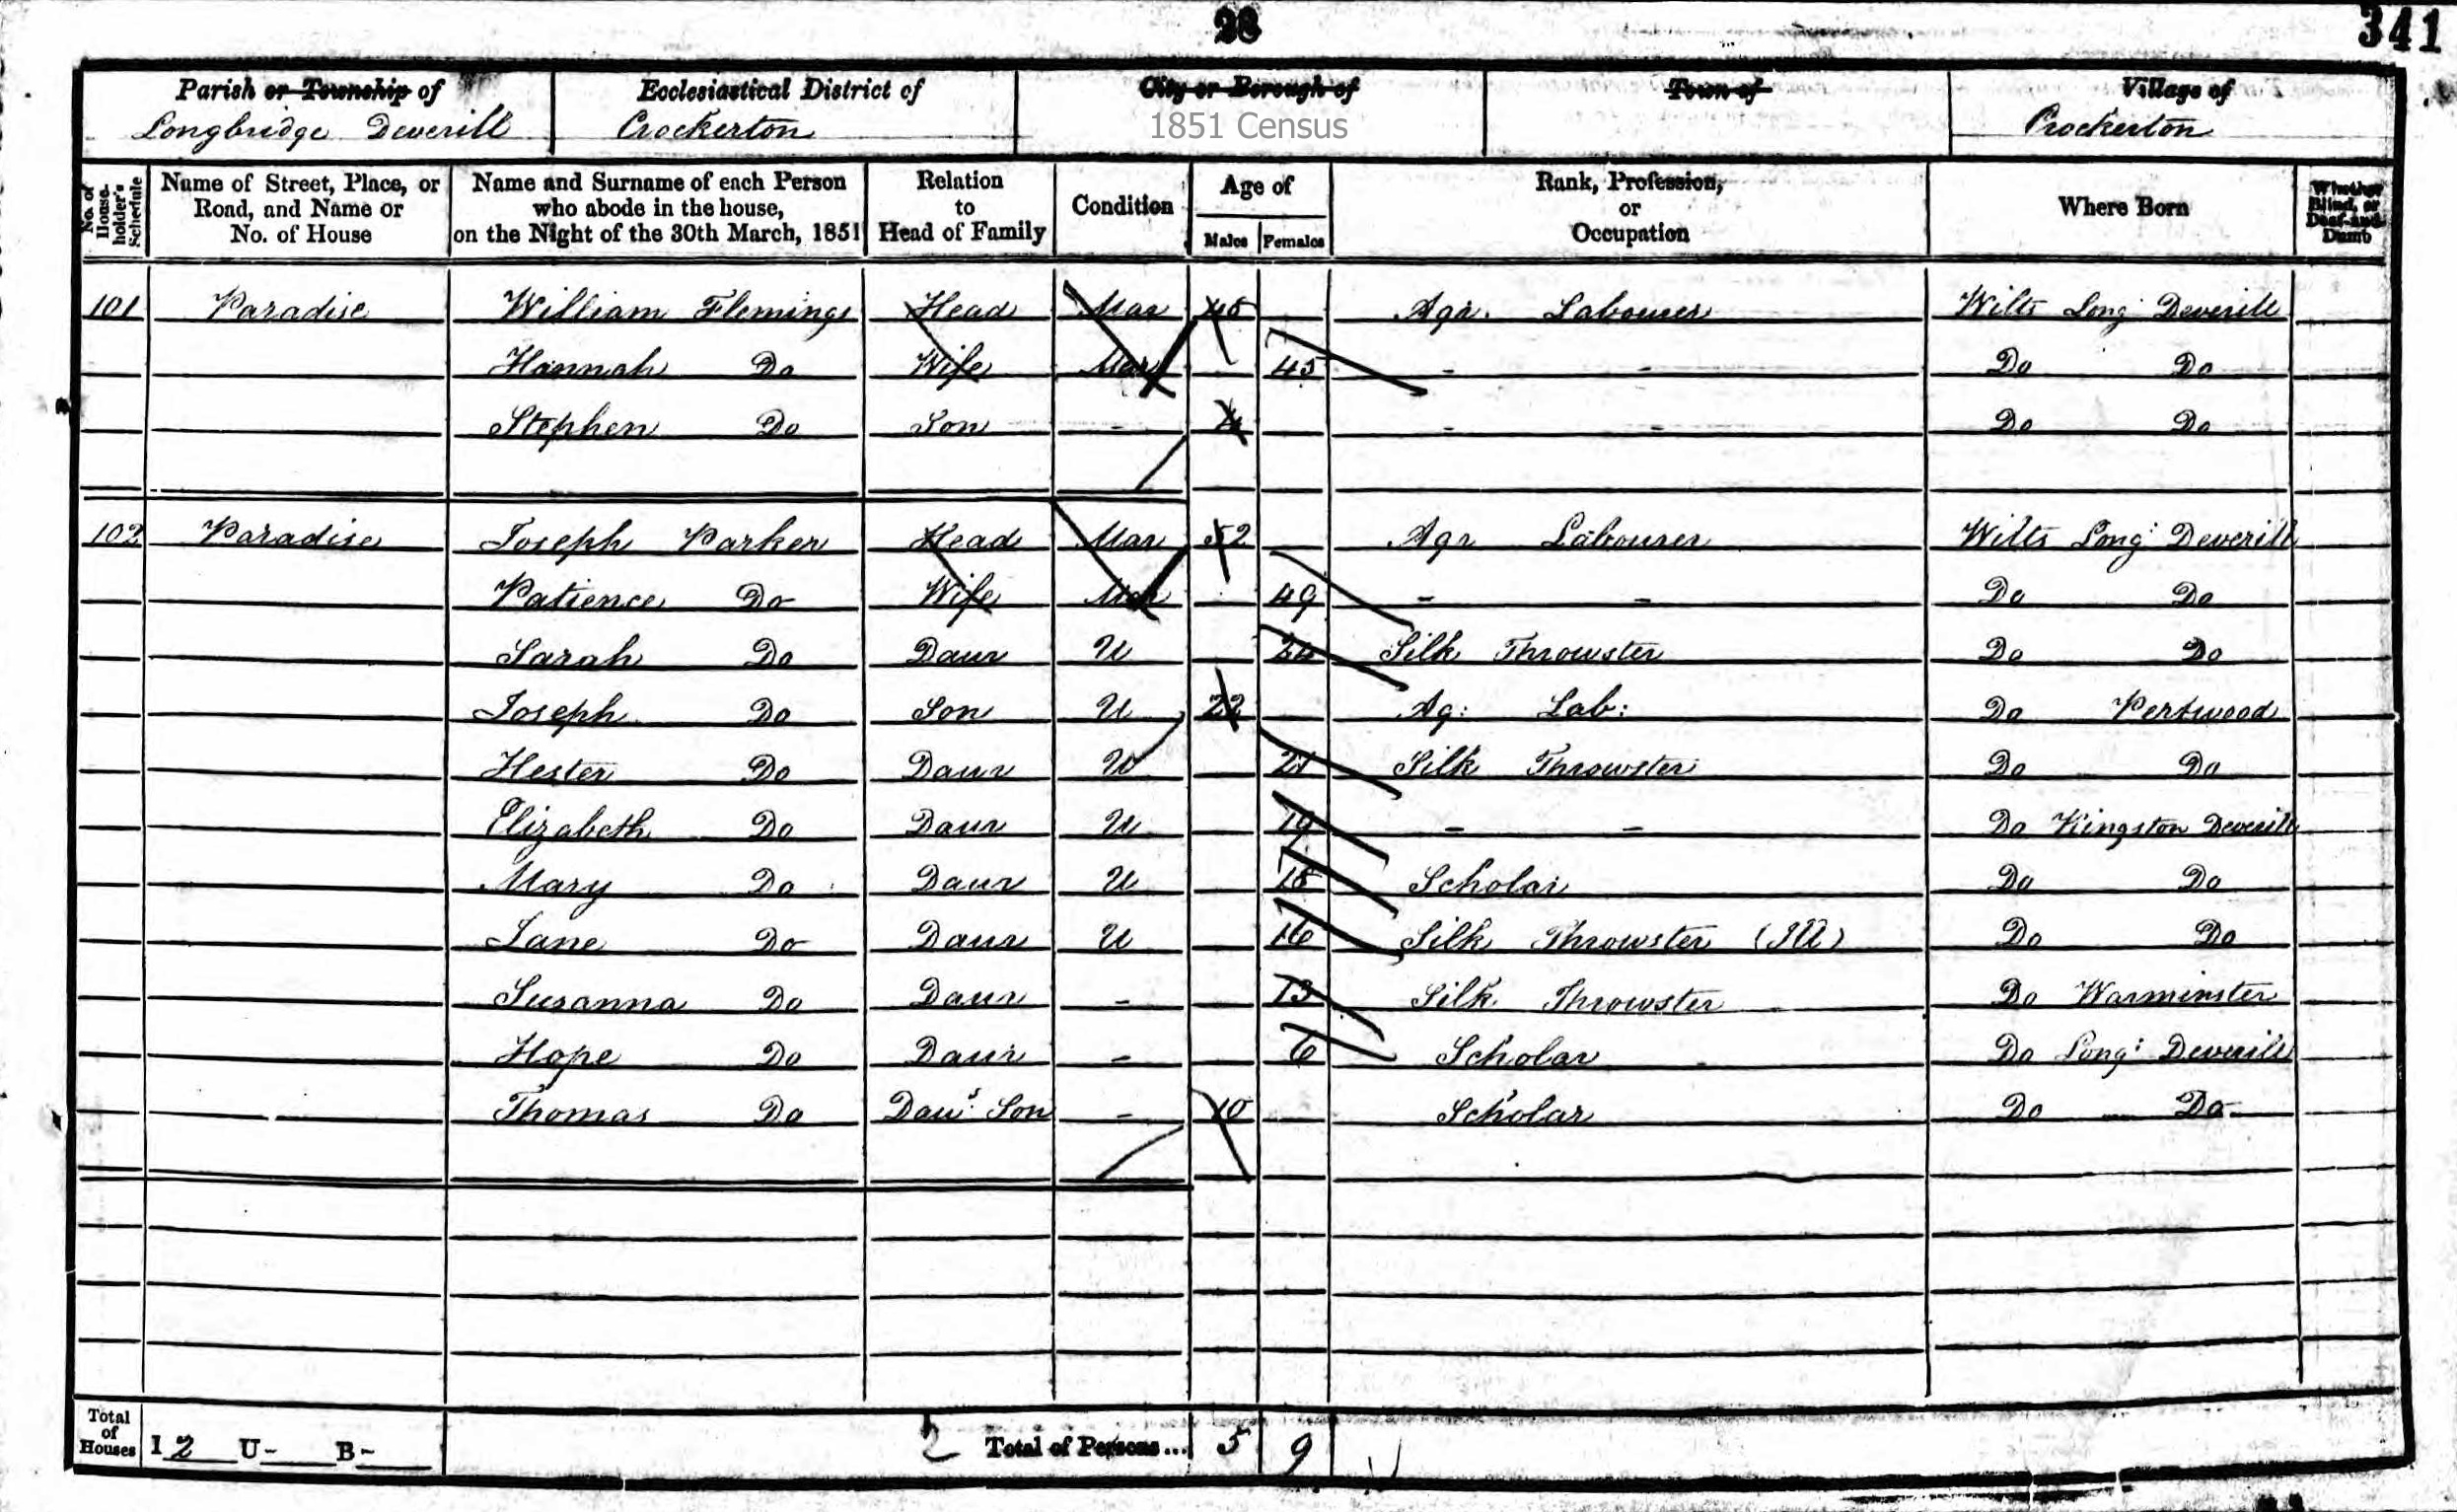 28
341
Parish or Township of
Longbridge Deverill
Ecclesiastical District of
Crockerton
City or Borough of
1851 Census
Town of
Village of
Crockerton
No. of House-holder's Schedule
Name of Street, Place, or Road, and Name or No. of House
Name and Surname of each Person who abode in the house, on the Night of the 30th March, 1851
Relation to Head of Family
Condition
Age of
Males Females
Rank, Profession, or Occupation
Where Born
Whether Blind, or Deaf-and-Dumb
101 Paradise William Flemings Head Mar Agr. Labourer Wilts Long Deverill
Hannah Do Wife Mar 45 - - Do Do
Stephen Do Son - 4 - - Do Do
102 Paradise Joseph Parker Head Mar 52 Agr Labourer Wilts Long: Deverill
Patience Do Wife Mar 49 - - Do Do
Sarah Do Daur U 24 Silk Throwster Do Do
Joseph Do Son U 22 Ag: Lab: Do Pertwood
Hester Do Daur U 21 Silk Throwster Do Do
Elizabeth Do Daur U 19 - - Do Kingston Deverill
Mary Do Daur U 18 Scholar Do Do
Jane Do Daur U 16 Silk Throwster Do Do
Susanna Do Daur - 13 Silk Throwster Do Warminster
Hope Do Daur - 6 Scholar Do Long: Deverill
Thomas Do Daurs Son - 10 Scholar Do Do
Total of Houses I 2 U - B - 2 Total of Persons... 5 9